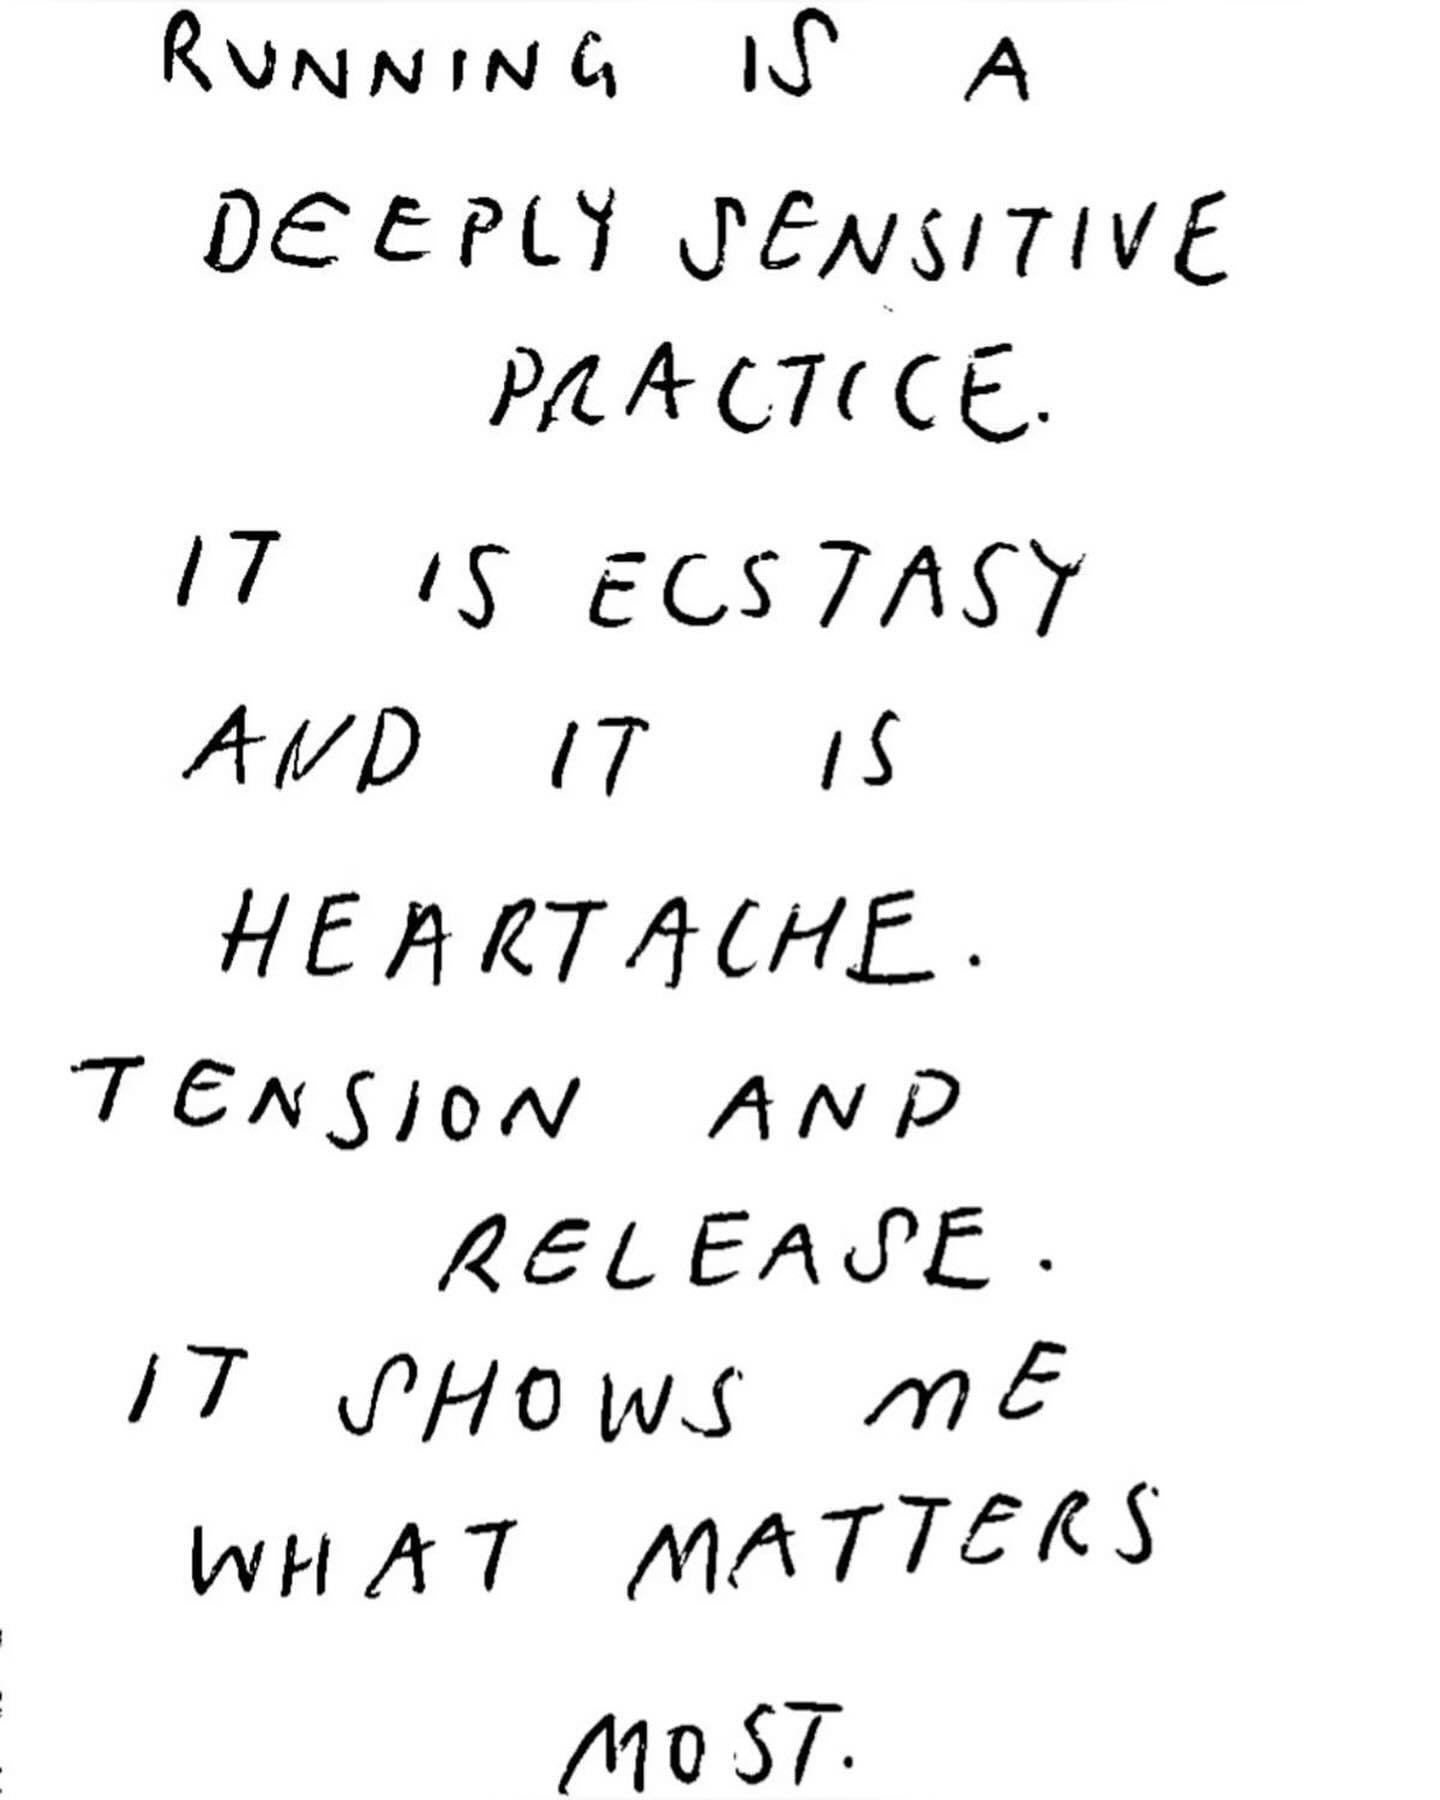 RUNNING IS A
DEEPLY SENSITIVE
PRACTICE.
IT IS ECSTASY
AND IT IS
HEARTACHE.
TENSION AND
RELEASE.
IT SHOWS ME
WHAT MATTERS
MOST.